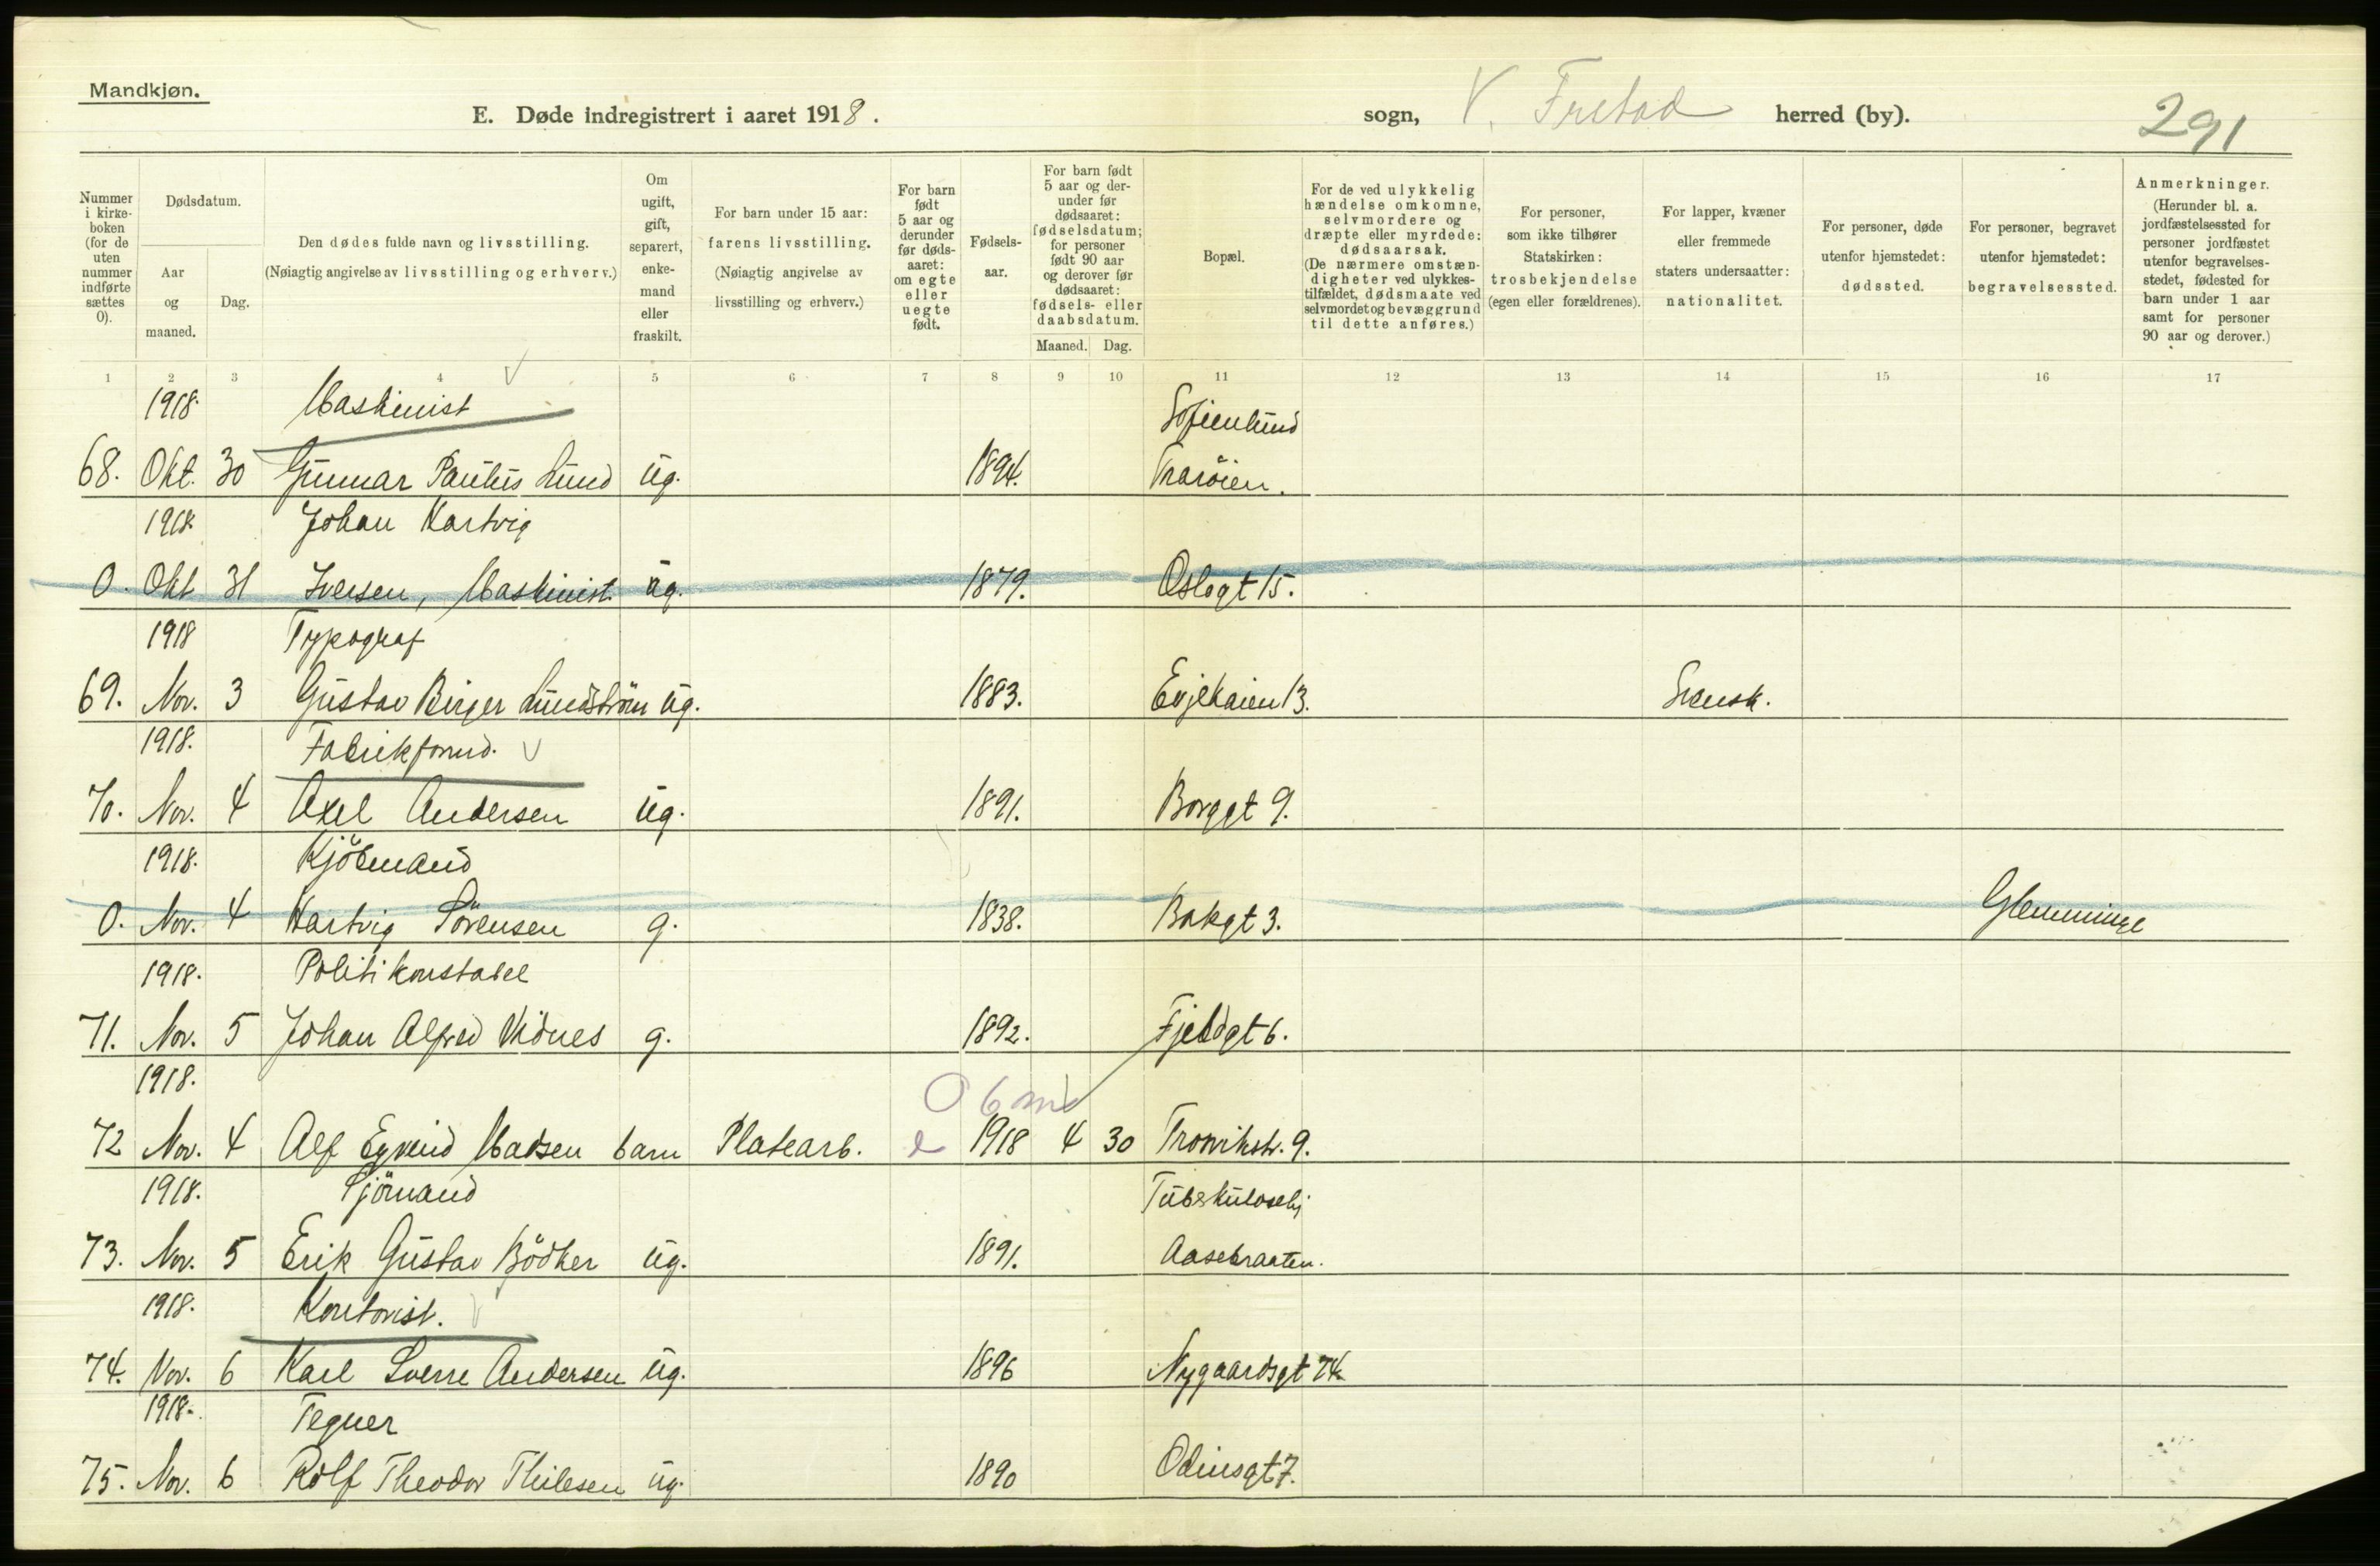 Mandkjøn.
E. Døde indregistrert i aaret 1918. sogn, V. Frstad herred (by). 291
Nummer i kirkeboken (for de uten nummer indførte sættes 0).
Dødsdatum.
Aar og maaned.
Dag.
Den dødes fulde navn og livsstilling. (Nøiagtig angivelse av livsstilling og erhverv.)
Om ugift, gift, separert, enkemand eller fraskilt.
For barn under 15 aar: farens livsstilling. (Nøiagtig angivelse av livsstilling og erhverv.)
For barn født 5 aar og derunder før dødsaaret: om egte eller uegte født.
Fødselsaar.
For barn født 5 aar og derunder før dødsaaret: fødselsdatum; for personer født 90 aar og derover før dødsaaret: fødsels- eller daabsdatum.
Maaned. Dag.
Bopæl.
For de ved ulykkelig hændelse omkomne, selvmordere og dræpte eller myrdede: dødsaarsak. (De nærmere omstændigheter ved ulykkestilfældet, dødsmaate ved selvmordet og bevæggrund til dette anføres.)
For personer, som ikke tilhører Statskirken: trosbekjendelse (egen eller forældrenes).
For lapper, kvæner eller fremmede staters undersaatter: nationalitet.
For personer, døde utenfor hjemstedet: dødssted.
For personer, begravet utenfor hjemstedet: begravelsessted.
Anmerkninger. (Herunder bl. a. jordfæstelsessted for personer jordfæstet utenfor begravelsesstedet, fødested for barn under 1 aar samt for personer 90 aar og derover.)
1 2 3 4 5 6 7 8 9 10 11 12 13 14 15 16 17
1918. Maskinist Sofienlund
68. Okt. 30 Gunnar Paulus Lund ug. 1894. Traröien.
1918 Johan Hartvig
0. Okt 31 Iversen, Maskinist. ug. 1879. Oslogt 15.
1918 Typograf
69. Nov. 3 Gustav Birger Lundström ug. 1883. Evjekaien 13. Svensk.
1918. Fabrikform.
70. Nov. 4 Axel Andersen ug. 1891. Borggt 9.
1918. Kjöbmand
0. Nov. 4 Hartvig Sörensen g. 1838. Bakgt 3. Glemminge
1918. Politikonstabel
71. Nov. 5 Johan Alfred Vidnes g. 1892. Fjeldgt 6.
1918. 0 6 md
72 Nov. 4 Alf Eyvind Madsen barn Platearb. e 1918 4 30 Trosvikstr. 9.
1918. Sjömand Tuberkulosehj
73. Nov. 5 Erik Gustav Bödker ug. 1891. Aasebraaten.
1918. Kontorist.
74. Nov. 6 Karl Sverre Andersen ug. 1896 Nygaardsgt 74
1918. Tegner
75. Nov. 6 Rolf Theodor Thilesen ug. 1890 Odinsgt 7.